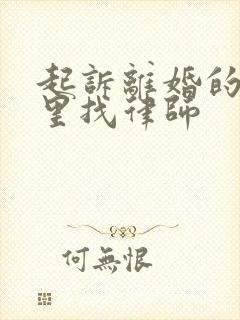 起訴離婚的
里找律師
何無恨